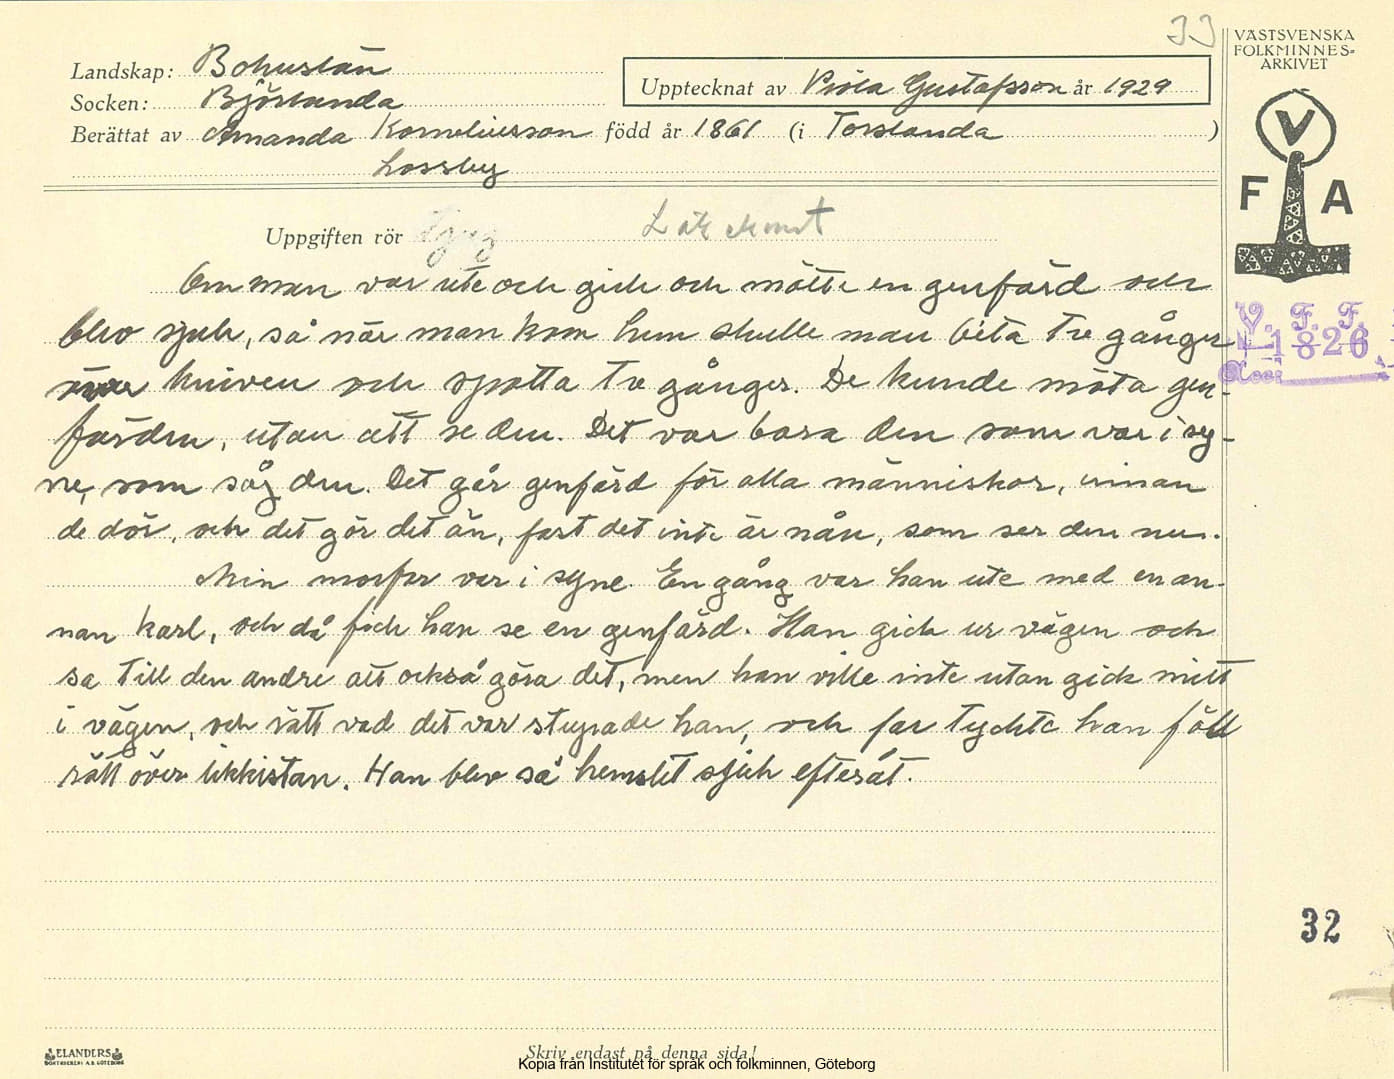 33
VÄSTSVENSKA
FOLKMINNES-
ARKIVET
Landskap: Bohuslän
Upptecknat av Viola Gustafsson år 1929
Socken: Björlanda
Berättat av Amanda Korneliusson född år 1861 (i Torslanda )
Lossby
V
F A
Uppgiften rör Läkekonst
Om man var ute och gick och mötte en genfärd och
blev sjuk, så när man kom hem skulle man bita tre gånger
över kniven och spotta tre gånger. De kunde möta gen-
färden, utan att se den. Det var bara den som var i sy-
ne, som såg den. Det går genfärd för alla människor, innan
de dör, och det gör det än, fast det inte är nån, som ser den nu.
Min morfar var i syne. En gång var han ute med en an-
nan karl, och då fick han se en genfärd. Han gick ur vägen och
sa till den andre att också göra det, men han ville inte utan gick mitt
i vägen, och rätt vad det var stupade han, och far tyckte han föll
rätt över likkistan. Han blev så hemskt sjuk efteråt.
V. F. F.
1826
Acc:
32
ELANDERS
BOKTRYCKERI A.B. GÖTEBORG
Skriv endast på denna sida!
Kopia från Institutet för språk och folkminnen, Göteborg